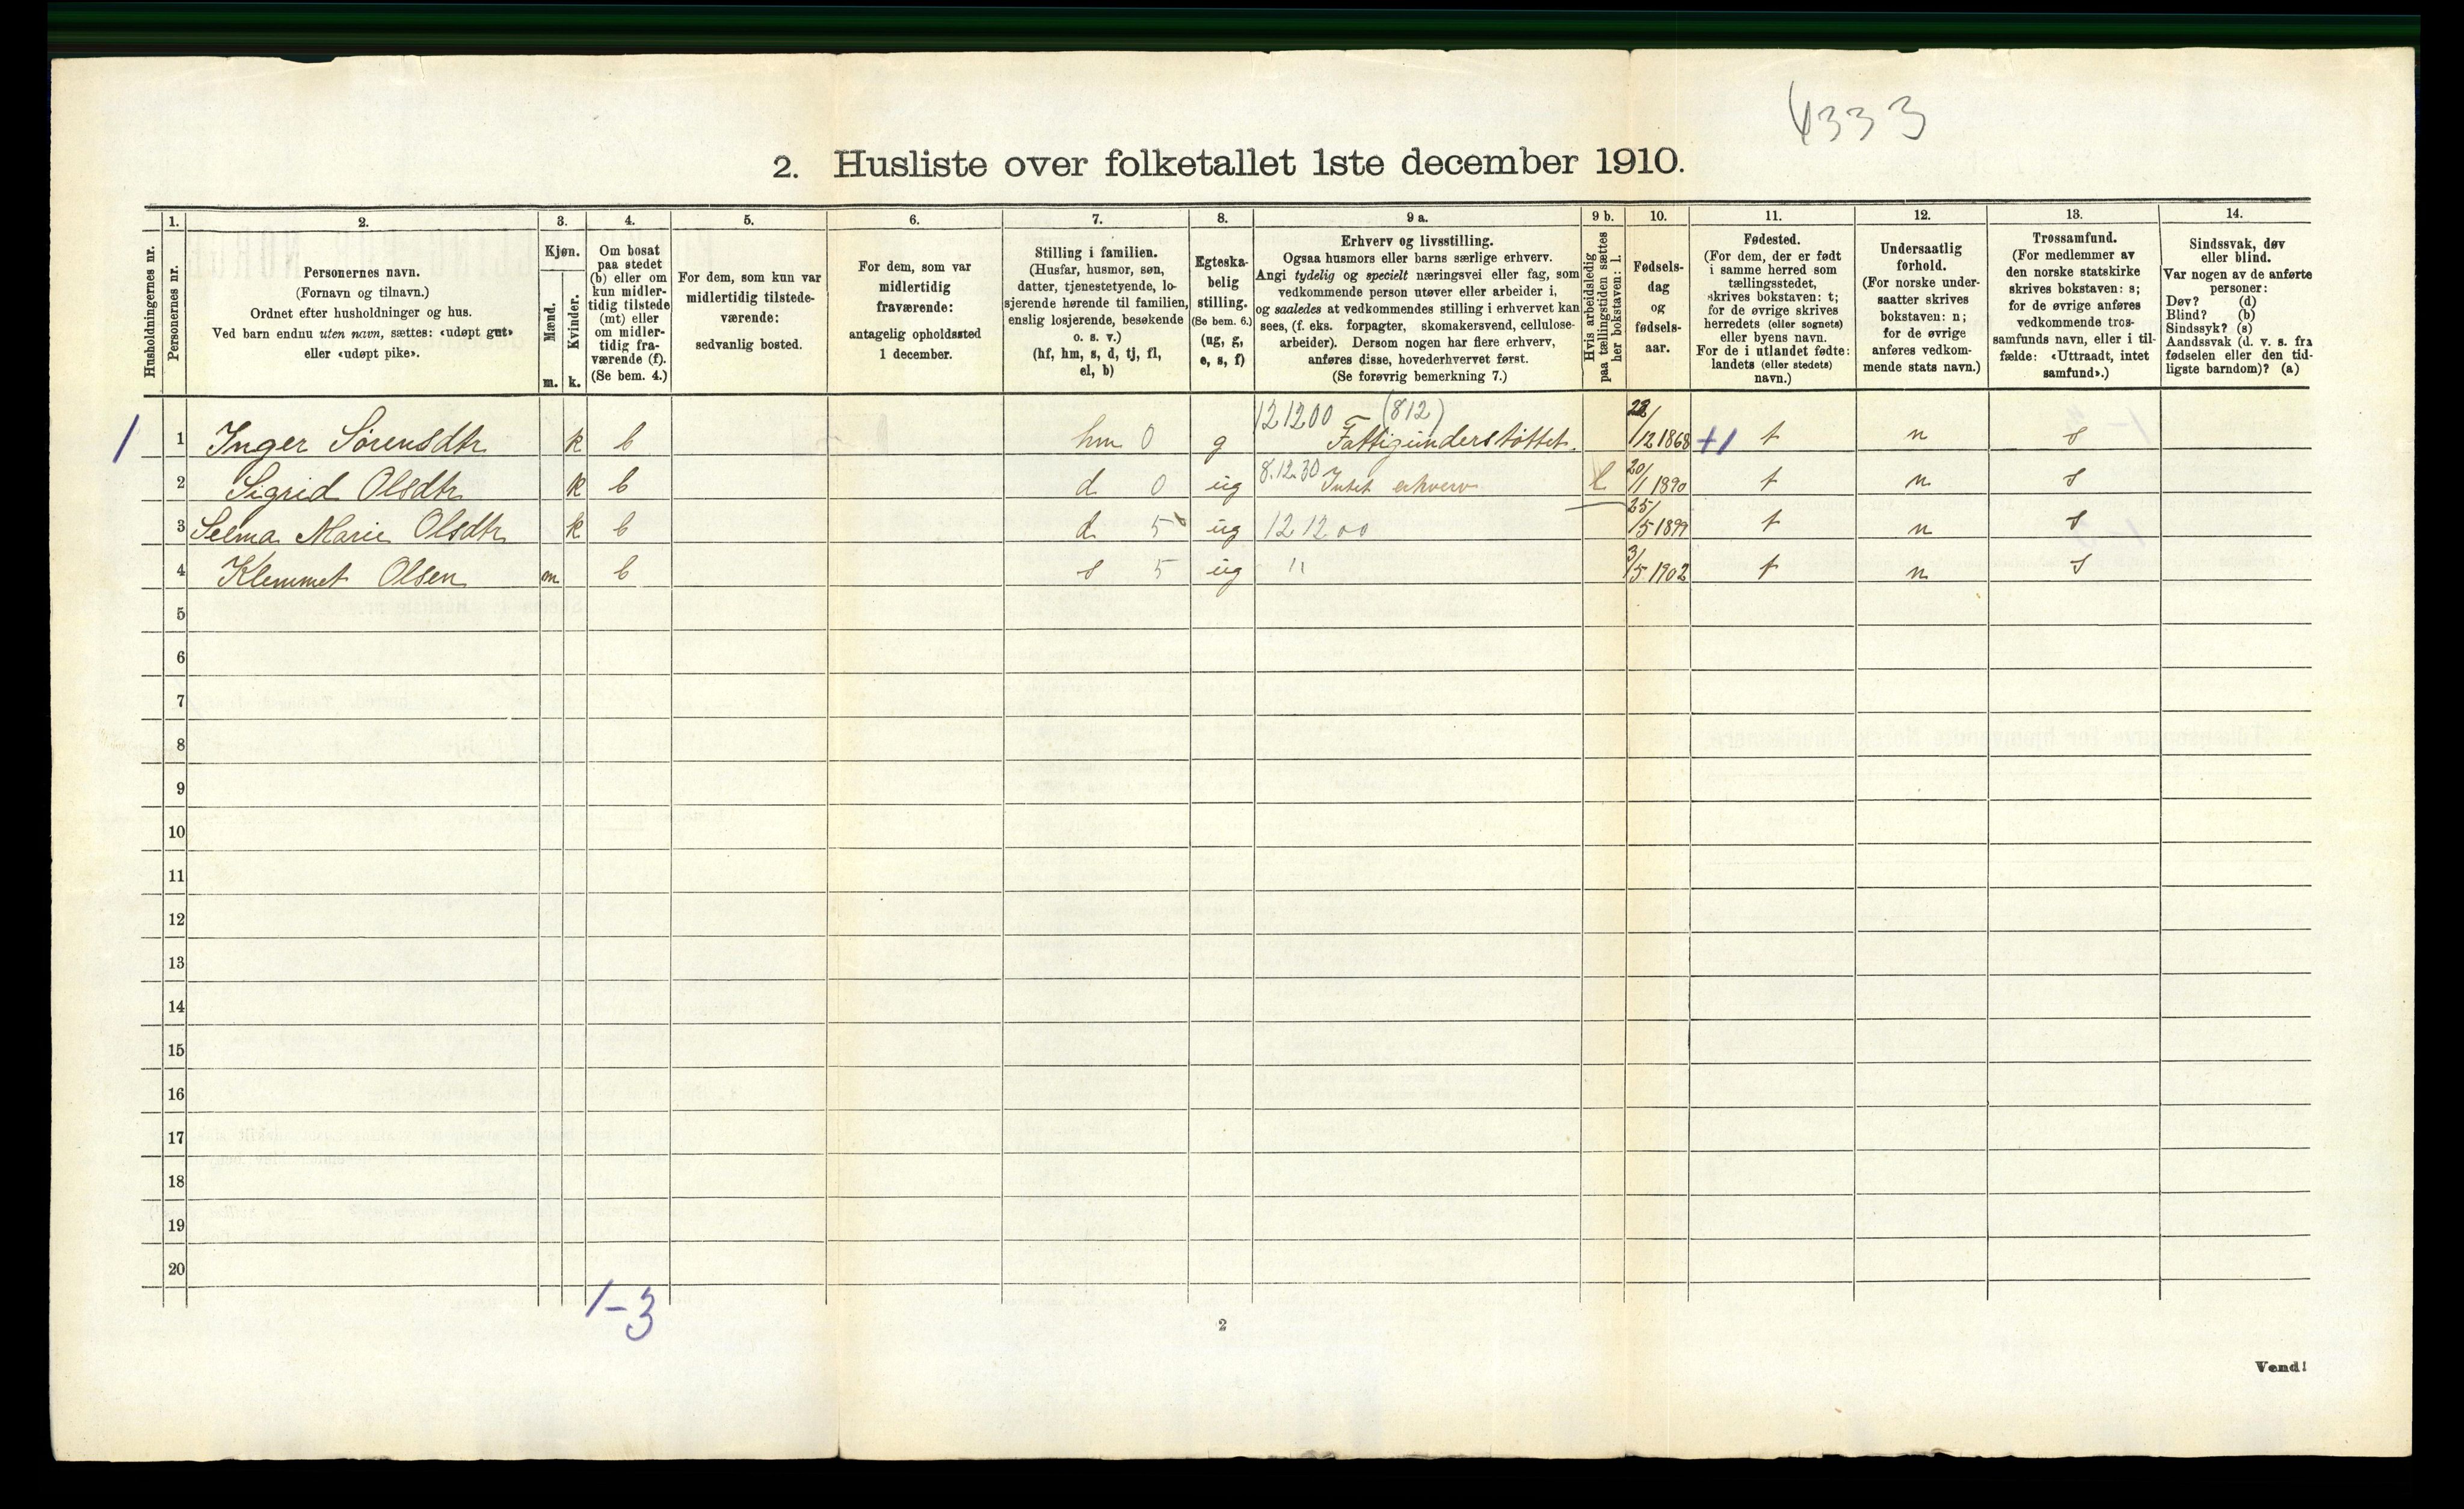 4333
2. Husliste over folketallet 1ste december 1910.
Husholdningernes nr.
1.
Personernes nr.
2.
Personernes navn.
(Fornavn og tilnavn.)
Ordnet efter husholdninger og hus.
Ved barn endnu uten navn, sættes: «udøpt gut»
eller «udøpt pike».
3.
Kjøn.
Mænd.
Kvinder.
m. k.
4.
Om bosat
paa stedet
(b) eller om
kun midler-
tidig tilstede
(mt) eller
om midler-
tidig fra-
værende (f).
(Se bem. 4.)
5.
For dem, som kun var
midlertidig tilstede-
værende:
sedvanlig bosted.
6.
For dem, som var
midlertidig
fraværende:
antagelig opholdssted
1 december.
7.
Stilling i familien.
(Husfar, husmor, søn,
datter, tjenestetyende, lo-
sjerende hørende til familien,
enslig losjerende, besøkende
o. s. v.)
(hf, hm, s, d, tj, fl,
el, b)
8.
Egteska-
belig
stilling.
(Se bem. 6.)
(ug, g,
e, s, f)
9 a.
Erhverv og livsstilling.
Ogsaa husmors eller barns særlige erhverv.
Angi tydelig og specielt næringsvei eller fag, som
vedkommende person utøver eller arbeider i,
og saaledes at vedkommendes stilling i erhvervet kan
sees, (f. eks. forpagter, skomakersvend, cellulose-
arbeider). Dersom nogen har flere erhverv,
anføres disse, hovederhvervet først.
(Se forøvrig bemerkning 7.)
9 b.
Hvis arbeidsledig
paa tællingstiden sættes
her bokstaven: l.
10.
Fødsels-
dag
og
fødsels-
aar.
11.
Fødested.
(For dem, der er født
i samme herred som
tællingsstedet,
skrives bokstaven: t;
for de øvrige skrives
herredets (eller sognets)
eller byens navn.
For de i utlandet fødte:
landets (eller stedets)
navn.)
12.
Undersaatlig
forhold.
(For norske under-
saatter skrives
bokstaven: n;
for de øvrige
anføres vedkom-
mende stats navn.)
13.
Trossamfund.
(For medlemmer av
den norske statskirke
skrives bokstaven: s;
for de øvrige anføres
vedkommende tros-
samfunds navn, eller i til-
fælde: «Uttraadt, intet
samfund».)
14.
Sindssvak, døv
eller blind.
Var nogen av de anførte
personer:
Døv? (d)
Blind? (b)
Sindssyk? (s)
Aandssvak (d. v. s. fra
fødselen eller den tid-
ligste barndom)? (a)
121200 (812)
1 1 Inger Sörensdtr k b hm 0 g Fattigunderstöttet. /12 1868 +1 t n s
2 Sigrid Olsdtr k b d 0 ug 8.12.30 Intet erhverv l 20/1 1890 t n s
3 Selma Marie Olsdtr k b d 5 ug 121200 25/5 1899 t n s
4 Klemmet Olsen m b s 5 ug " 3/5 1902 t n s
5
6
7
8
9
10
11
12
13
14
15
16
17
18
19
20
1-3
2
Vend!